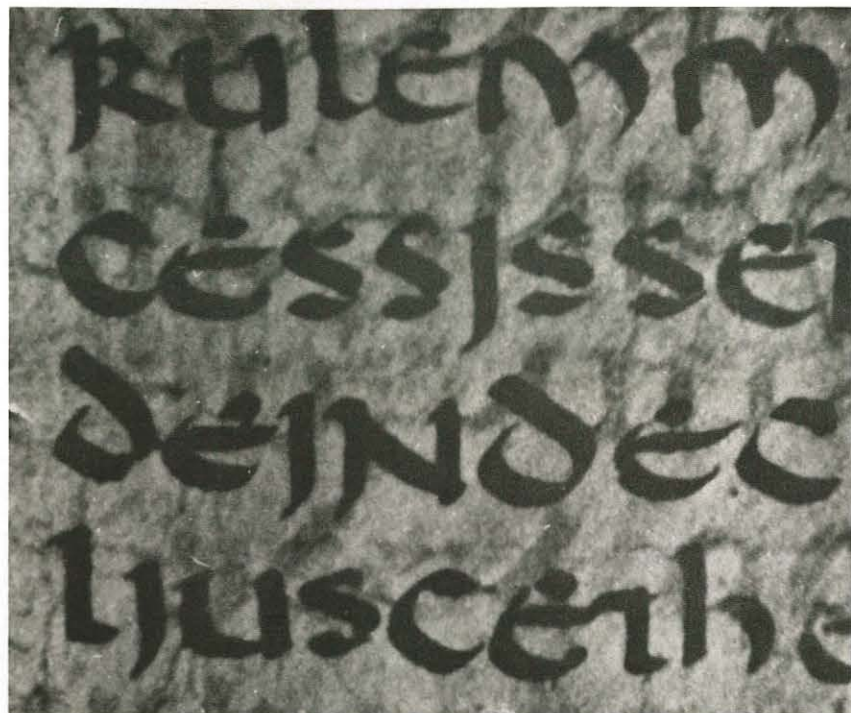 rulemm
cessissen
deindec
liuscethe